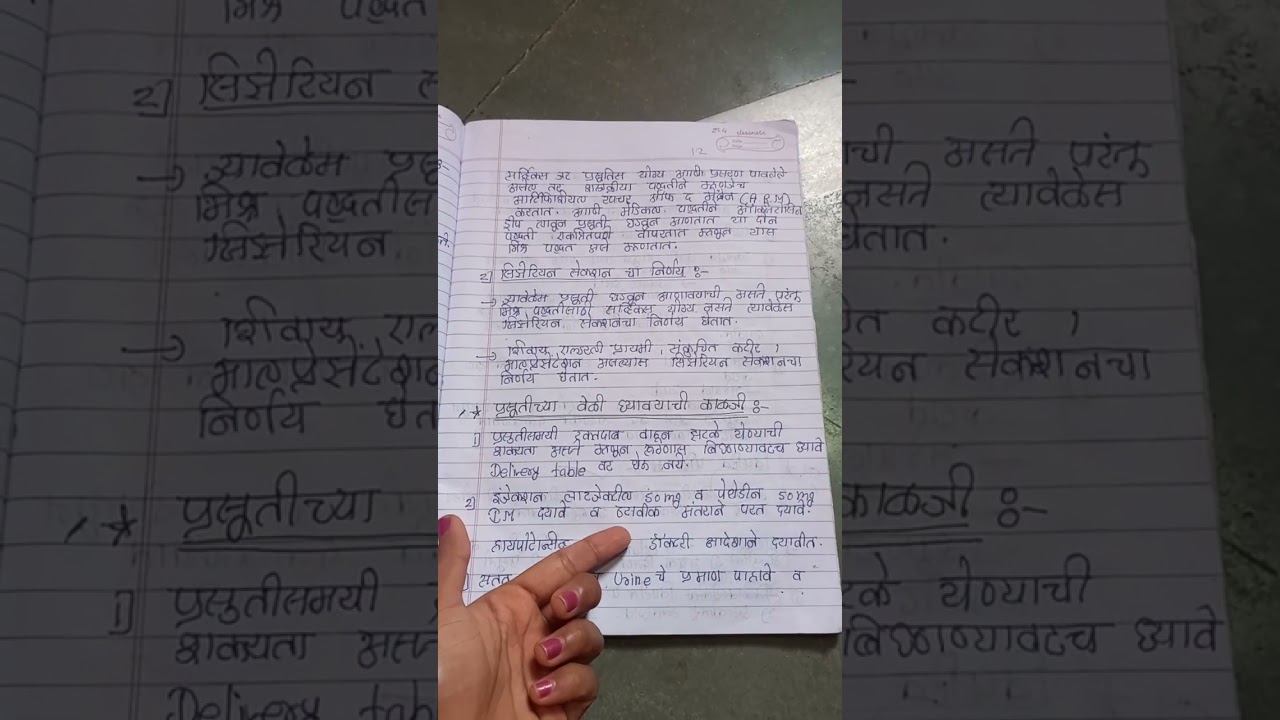 12
सर्व्हिक्स जर प्रसुतिस योग्य आणि प्रसरण पावलेले
असेल तर शस्त्रक्रीया पध्दतीने म्हणजेच
आर्टिफीशीयल रपचर ऑफ द मेंब्रेन (A.R.M)
करतात. आणि मेडिकल पध्दतीने
ड्रीप लावून प्रसुती घडवून आणतात या दोन
पध्दती एकत्रितपणे वापरतात म्हणून यास
मिश्र पध्दत असे म्हणतात.
2) सिझेरियन सेक्शन चा निर्णय :-
→ ज्यावेळेस प्रसुती घडवून आणावयाची असते परंतु
मिश्र पध्दतीसाठी सर्व्हिक्स योग्य नसते त्यावेळेस
सिझेरियन सेक्शनचा निर्णय घेतात.
→ शिवाय एल्डरली प्रायमी, संकुचित कटीर,
मालप्रेसेंटेशन असल्यास सिझेरियन सेक्शनचा
निर्णय घेतात.
★ प्रसुतीच्या वेळी घ्यावयाची काळजी :-
1) प्रसुतीसमयी रक्तदाब वाढून झटके येण्याची
शक्यता असते म्हणून रुग्णास बिछाण्यावरच घ्यावे
Delivery table वर घेऊ नये.
2) इंजेक्शन 50 mg व पेथेडीन 50 mg
IM दयावे व ठराविक अंतराने परत दयावे.
हायपोटेन्सीव डॉक्टरी आदेशाने दयावीत.
सतत Urine चे प्रमाण पाहावे व